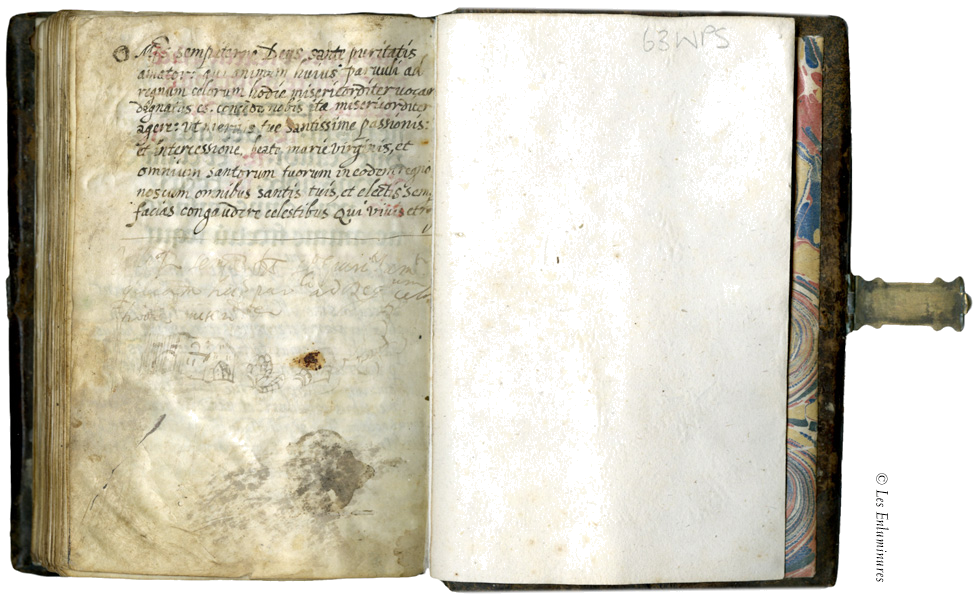 O Mĩs sempiterne Deus sante puritatis
amator: qui animam huius paruuli ad
regnum celorum hodie misericorditer vocar
dignatus es. concede nobis ita misericorditer
agere: vt meritis tue santissime passionis:
et intercessione beate marie virginis, et
omnium santorum tuorum in eodem regno
nos cum omnibus santis tuis, et elect.s sem
facias congaudere celestibus Qui viuis et r
ad reg
63WPS
© Les Enluminures